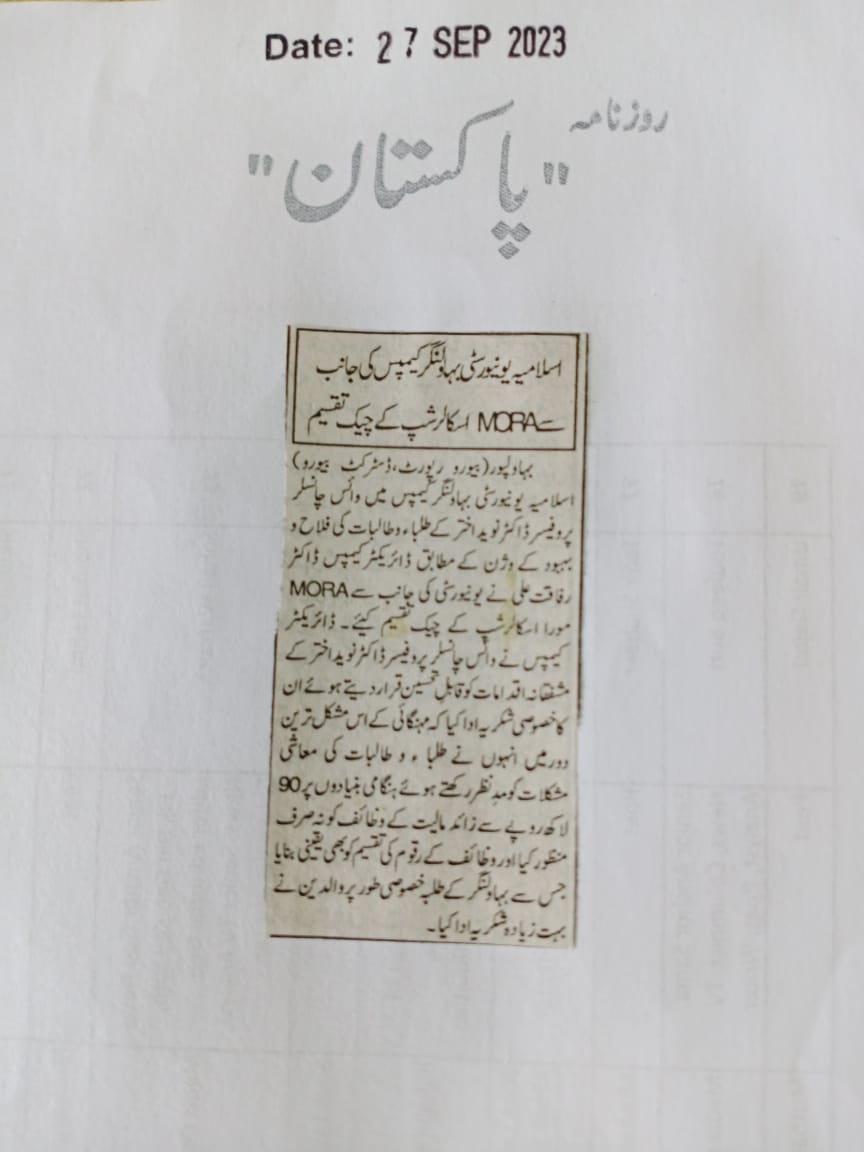 Date: 27 SEP 2023
روزنامہ
"پاکستان"
اسلامیہ یونیورسٹی بہاولنگر کیمپس کی جانب
سے MORA اسکالرشپ کے چیک تقسیم
بہاولپور (بیورو رپورٹ، ڈسٹرکٹ بیورو)
اسلامیہ یونیورسٹی بہاولنگر کیمپس میں وائس چانسلر
پروفیسر ڈاکٹر نوید اختر کے طلباء و طالبات کی فلاح و
بہبود کے وژن کے مطابق ڈائریکٹر کیمپس ڈاکٹر
رفاقت علی نے یونیورسٹی کی جانب سے MORA
مورا اسکالرشپ کے چیک تقسیم کیئے۔ ڈائریکٹر
کیمپس نے وائس چانسلر پروفیسر ڈاکٹر نوید اختر کے
مشفقانہ اقدامات کو قابل تحسین قرار دیتے ہوئے ان
کا خصوصی شکریہ ادا کیا کہ مہنگائی کے اس مشکل ترین
دور میں انہوں نے طلباء و طالبات کی معاشی
مشکلات کو مدنظر رکھتے ہوئے ہنگامی بنیادوں پر 90
لاکھ روپے سے زائد مالیت کے وظائف کو نہ صرف
منظور کیا اور وظائف کے رقوم کی تقسیم کو بھی یقینی بنایا
جس سے بہاولنگر کے طلبہ خصوصی طور پر والدین نے
بہت زیادہ شکریہ ادا کیا۔